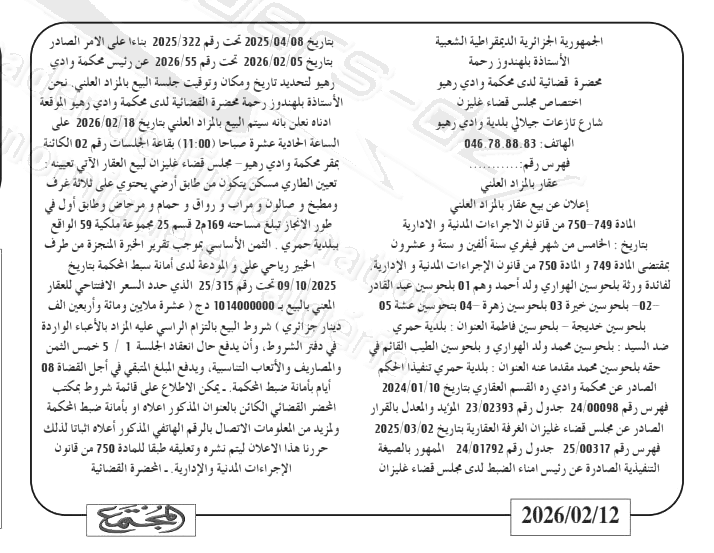 الجمهورية الجزائرية الديمقراطية الشعبية
الأستاذة بلهندوز رحمة
محضرة قضائية لدى محكمة وادي رهيو
اختصاص مجلس قضاء غليزان
شارع تازغات جيلالي بلدية وادي رهيو
الهاتف: 046.78.88.83
فهرس رقم:...........
عقار بالمزاد العلني
إعلان عن بيع عقار بالمزاد العلني
المادة 749-750 من قانون الاجراءات المدنية و الادارية
بتاريخ : الخامس من شهر فيفري سنة ألفين و ستة و عشرون
بمقتضى المادة 749 و المادة 750 من قانون الإجراءات المدنية و الإدارية.
لفائدة ورثة بلحوسين الهواري ولد أحمد وهم 01 بلحوسين عبد القادر
-02- بلحوسين خيرة 03 بلحوسين زهرة -04 بتحوسين عشة 05
بلحوسين خديجة - بلحوسين فاطمة العنوان : بلدية حمري
ضد السيد : بلحوسين محمد ولد الهواري و بلحوسين الطيب القائم في
حقه بلحوسين محمد مقدما عنه العنوان : بلدية حمري تنفيذا الحكم
الصادر عن محكمة وادي ره القسم العقاري بتاريخ 2024/01/10
فهرس رقم 24/00098 جدول رقم 23/02393 المؤيد والمعدل بالقرار
الصادر عن مجلس قضاء غليزان الغرفة العقارية بتاريخ 2025/03/02
فهرس رقم 25/00317 جدول رقم 24/01792 الممهور بالصيغة
التنفيذية الصادرة عن رئيس امناء الضبط لدى مجلس قضاء غليزان
بتاريخ 2025/04/08 تحت رقم 2025/322 بناءا على الامر الصادر
بتاريخ 2026/02/05 تحت رقم 2026/55 عن رئيس محكمة وادي
رهيو لتحديد تاريخ ومكان وتوقيت جلسة البيع بالمزاد العلني. نحن
الأستاذة بلهندوز رحمة محضرة القضائية لدى محكمة وادي رهيو الموقعة
ادناه نعلن بانه سيتم البيع بالمزاد العلني بتاريخ 2026/02/18 على
الساعة الحادية عشرة صباحا (11:00) بقاعة الجلسات رقم 02 الكائنة
بمقر محكمة وادي رهيو- مجلس قضاء غليزان لبيع العقار الآتي تعيينه :
تعيين الطاري مسكن يتكون من طابق أرضي يحتوي على ثلاثة غرف
ومطبخ و صالون و مراب و رواق و حمام و مرحاض وطابق أول في
طور الانجاز تبلغ مساحته 169م2 قسم 25 مجموعة ملكية 59 الواقع
ببلدية حمري . الثمن الأساسي بموجب تقرير الخبرة المنجزة من طرف
الخبير رياحي على و المودعة لدى أمانة سبط المحكمة بتاريخ
09/10/2025 تحت رقم 25/315 الذي حدد السعر الافتتاحي للعقار
المعني بالبيع بـ 1014000000 دج ( عشرة ملايين ومائة وأربعين الف
دينار جزائري ) شروط البيع بالتزام الراسي عليه المزاد بالأعباء الواردة
في دفتر الشروط، وأن يدفع حال انعقاد الجلسة 1 / 5 خمس الثمن
والمصاريف والأتعاب التناسبية، ويدفع المبلغ المتبقي في أجل القضاة 08
أيام بأمانة ضبط المحكمة. ـ يمكن الاطلاع على قائمة شروط بمكتب
المحضر القضائي الكائن بالعنوان المذكور اعلاه او بأمانة ضبط المحكمة
ولمزيد من المعلومات الاتصال بالرقم الهاتفي المذكور أعلاه اثباتا لذلك
حررنا هذا الاعلان ليتم نشره وتعليقه طبقا للمادة 750 من قانون
الإجراءات المدنية والإدارية. ـ المحضرة القضائية
2026/02/12
المجتمع